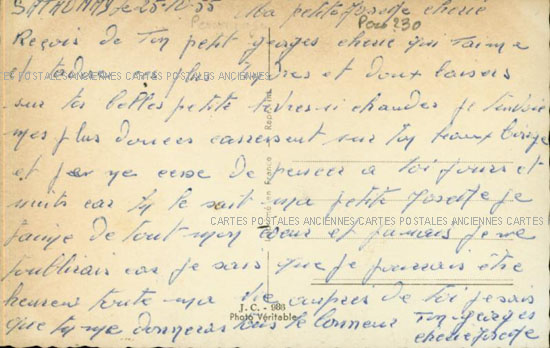 SATHONAY le 25-10-55 Ma petite Josette cherie
Reçois de ton petit georges cherie qui t'aime
et t'adore mes plus tendres et doux baisers
CARTES POSTALES ANCIENNES CARTES POSTALES ANCIENNES
sur tes belles petite levres si chaudes je t'envoie
mes plus douces caresses sur ton beau
et je ne cesse de penser a toi jours et
nuits car tu le sait ma petite Josette je
CARTES POSTALES ANCIENNES CARTES POSTALES ANCIENNES CARTES
t'aime de tout mon coeur et jamais je ne
t'oublirais car je sais que je pourrais être
heureux toute ma vie aupres de toi je sais
que tu me donneras tous le bonheur ton georges
cherie Josette
J. C. - 908
Photo Véritable
en France - Reproduction